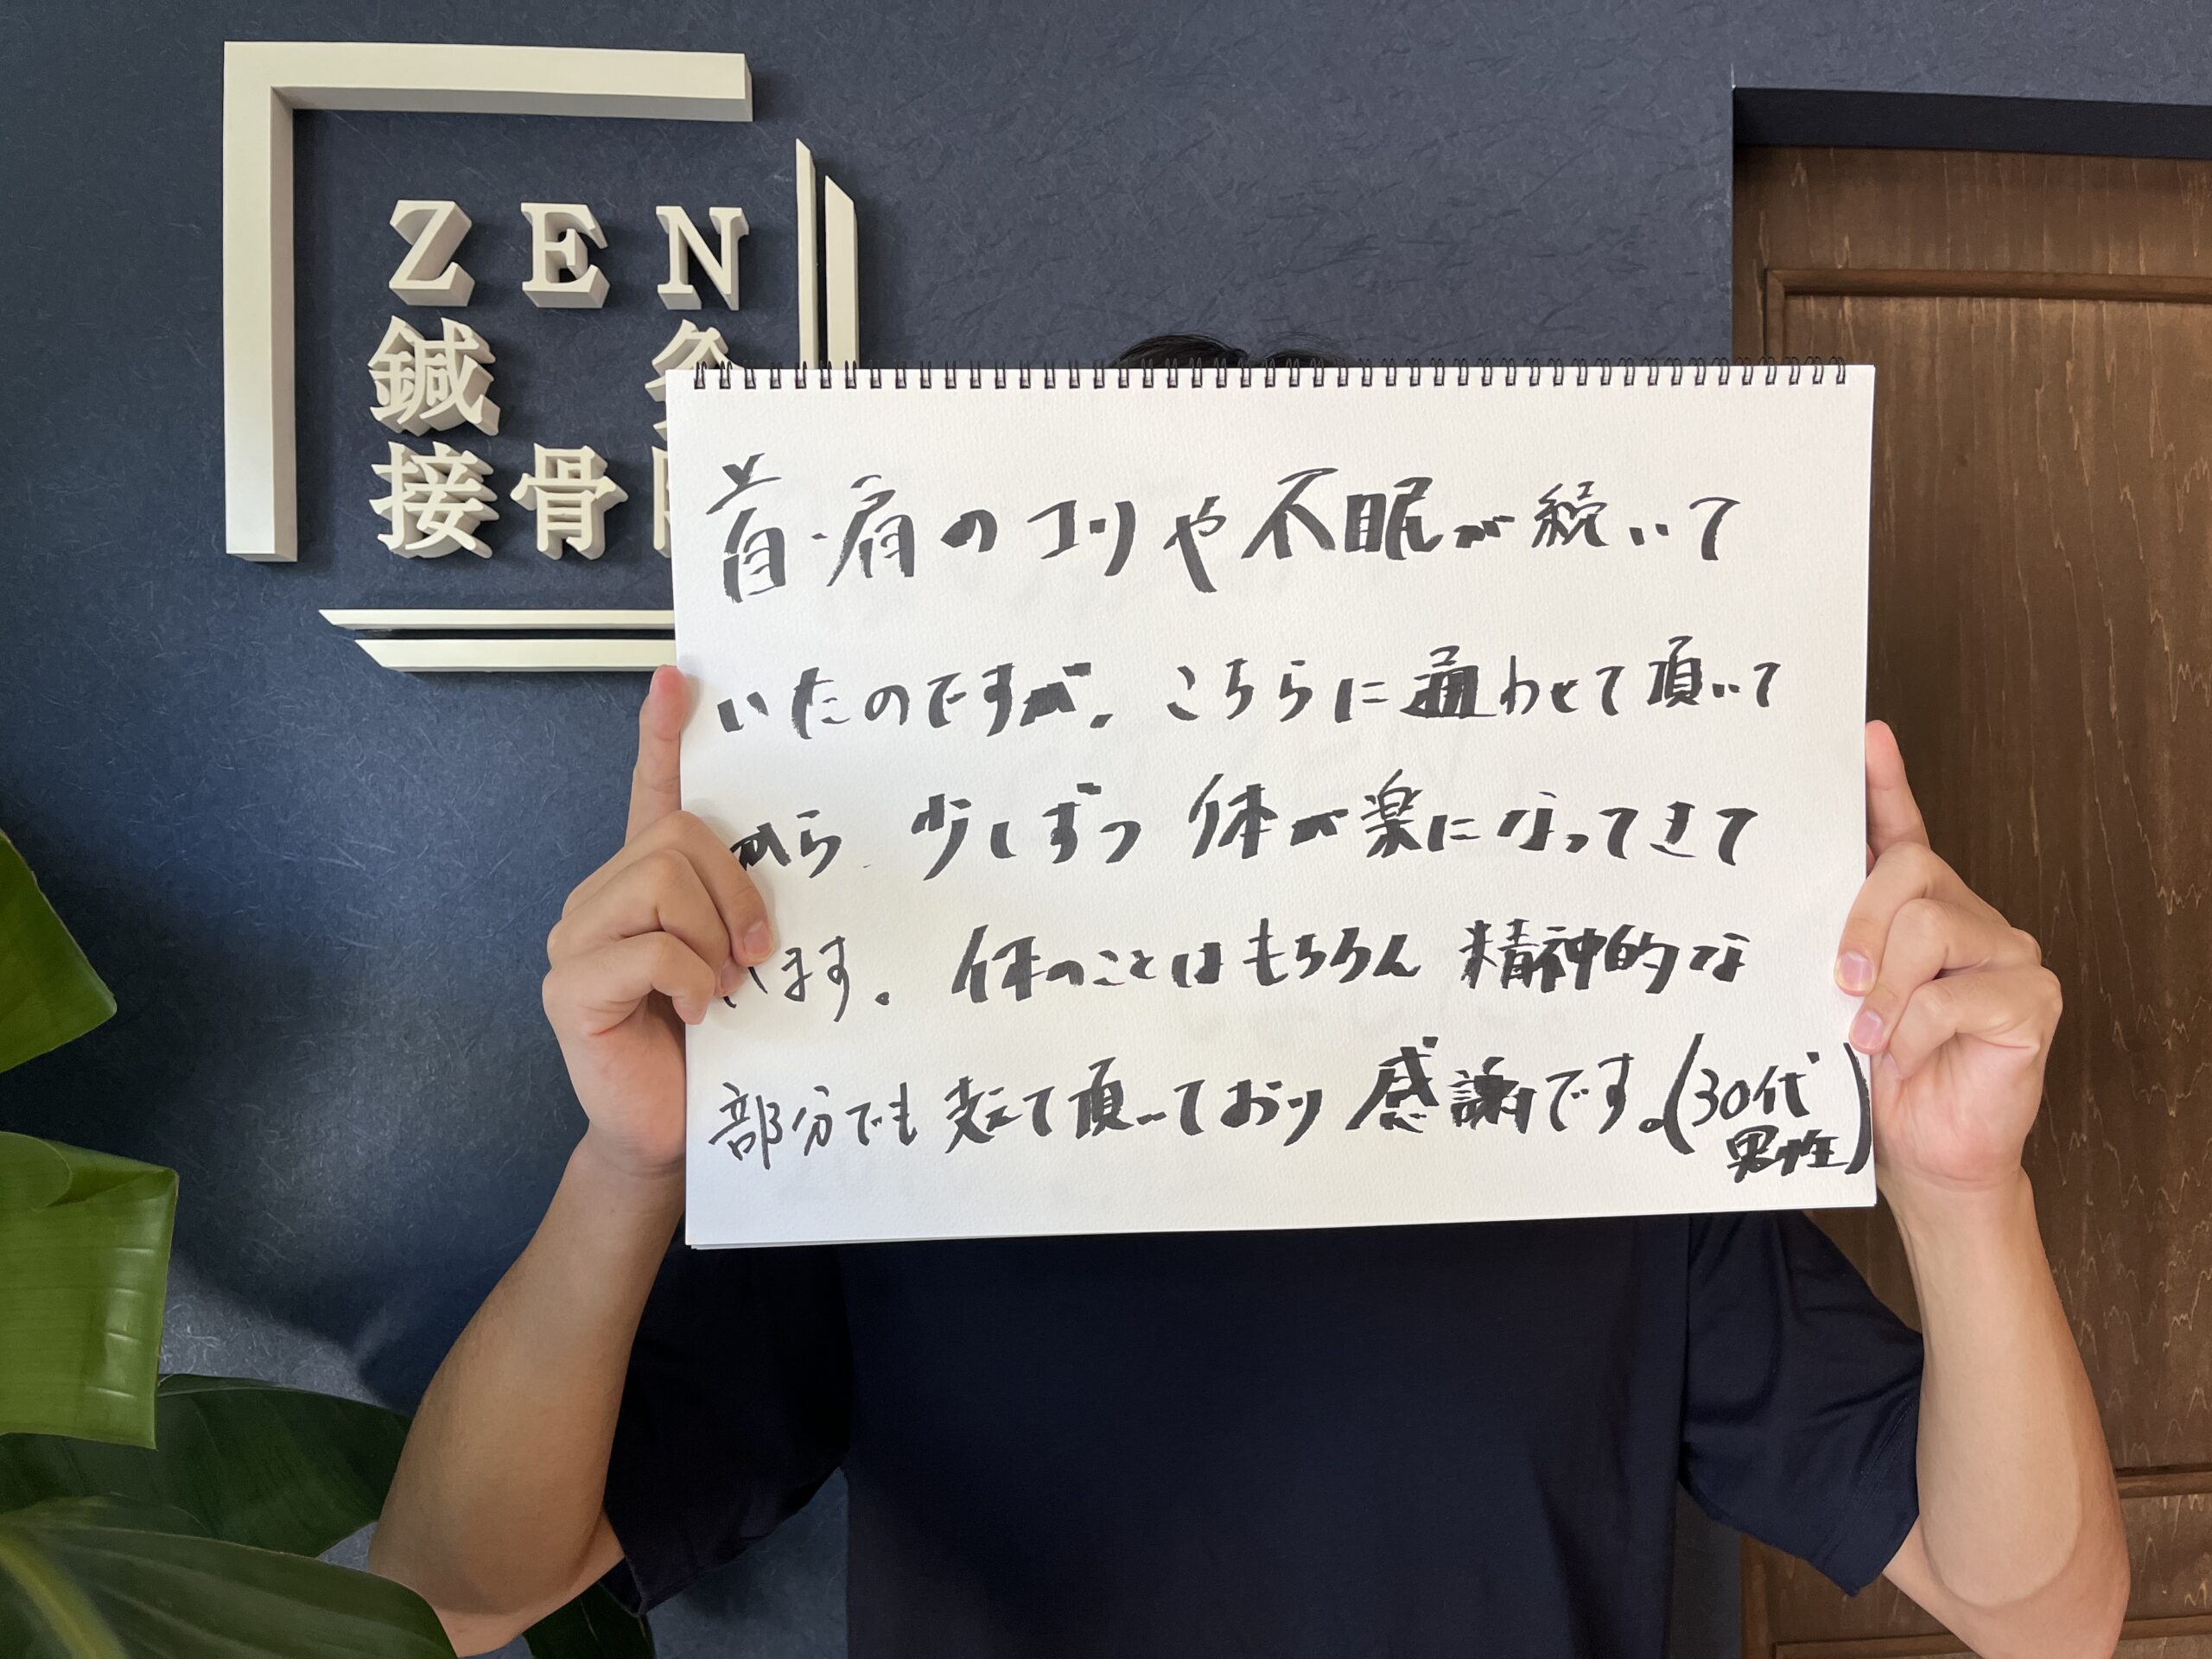 ZEN
鍼灸
接骨
首・肩のコリや不眠が続いて
いたのですが、こちらに通わせて頂いて
から、少しずつ体が楽になってきて
います。体のことはもちろん精神的な
部分でも支えて頂いており感謝です。(30代
男性)